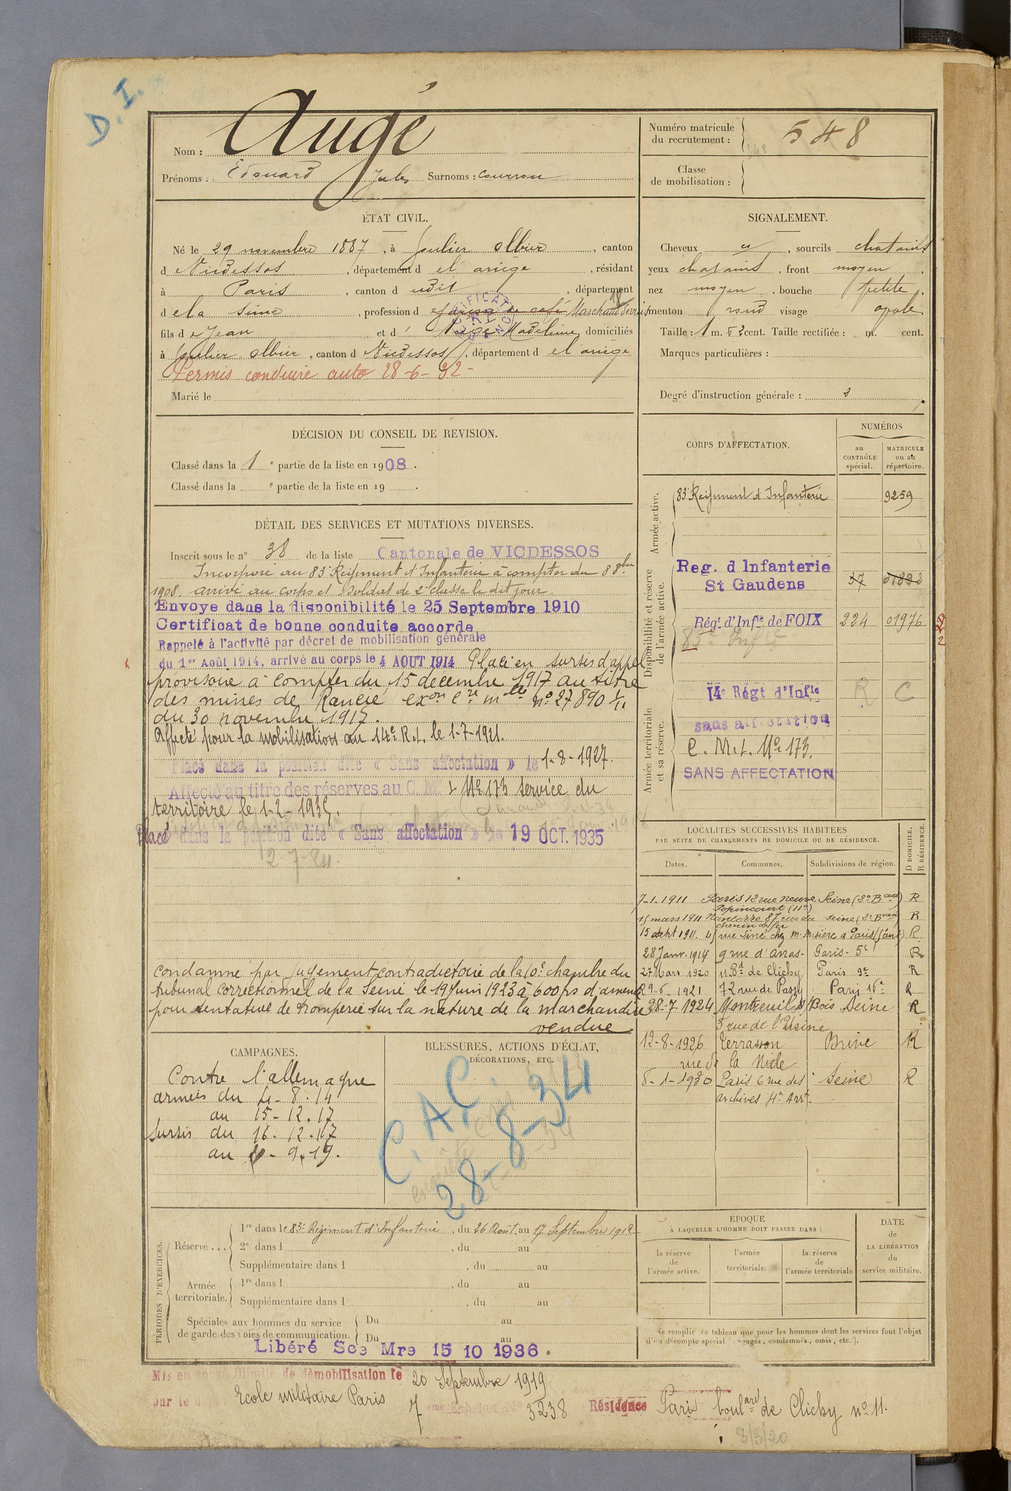 D. I.
Nom : Augé
Prénoms : Edouard Jules Surnoms : courrou
Numéro matricule
du recrutement : 548
Classe
de mobilisation :
ÉTAT CIVIL.
Né le 29 novembre 1887, à Goulier Olbier, canton
d e Vicdessos, département d el ariège, résidant
à Paris, canton d udit, département
d e la Seine, profession d e garçon de café Marchand
fils d e Jean et d Madeleine, domiciliés
à Goulier Olbier, canton d Vicdessos, département d el ariège
Permis conduire auto 28-6-32-
Marié le
SIGNALEMENT.
Cheveux , sourcils chatains
yeux chatains, front moyen,
nez moyen, bouche petite,
menton rond visage ovale
Taille : 1 m. cent. Taille rectifiée : m. cent.
Marques particulières :
Degré d'instruction générale : 3
DÉCISION DU CONSEIL DE REVISION.
Classé dans la 1 e partie de la liste en 1908.
Classé dans la e partie de la liste en 19 .
DÉTAIL DES SERVICES ET MUTATIONS DIVERSES.
Inscrit sous le n° 38 de la liste Cantonale de VICDESSOS
Incorporé au 83e Régiment d'Infanterie à compter du 8 8bre
1908. arrivé au corps et soldat de 2e classe le dit jour.
Envoyé dans la disponibilité le 25 Septembre 1910
Certificat de bonne conduite accordé
Rappelé à l'activité par décret de mobilisation générale
du 1er Août 1914, arrivé au corps le 4 AOUT 1914 Placé en sursis d'appel
provisoire à compter du 15 décembre 1917 au titre
des mines de Rancié n° 27890
du 30 novembre 1917.
Affecté pour la mobilisation au 14e R.I. le 1-7-1921.
Placé dans la position dite « Sans affectation » le 1-8-1927.
Affecté au titre des réserves au C. M. I. N° 173 service du
territoire le 1-2-1935.
Placé dans la position dite « Sans affectation » le 19 OCT. 1935
Condamné par jugement contradictoire de la 10e chambre du
tribunal correctionnel de la Seine le 19 juin 1923 à 600 frs d'amende
pour tentative de tromperie sur la nature de la marchandise
vendue
CORPS D'AFFECTATION.
NUMÉROS
au
CONTRÔLE
spécial.
MATRICULE
ou au
répertoire.
Armée active.
83e Régiment d'Infanterie 9259
Disponibilité et réserve
de l'armée active.
Reg. d Infanterie
St Gaudens
Rég. d'Infie de FOIX 224 01976
Armée territoriale
et sa réserve.
14e Régt d'Infie R C
sans affectation
C. M. I. N° 173.
SANS AFFECTATION
LOCALITÉS SUCCESSIVES HABITÉES
PAR SUITE DE CHANGEMENTS DE DOMICILE OU DE RÉSIDENCE.
D DOMICILE.
R RÉSIDENCE.
Dates. Communes. Subdivisions de région.
7-1-1911 Paris 12 rue neuve Seine (3e Bau) R
Popincourt (11e)
15 mars 1911 Nanterre 87 rue du Seine (3e Bau) R
chemin de fer
15 1911. R
28 Janv. 1914 9 rue d'Arras- Paris-5e R
27 Mars 1920 11 Bd de Clichy Paris 9e R
29-6-1921 72 rue de Passy Paris 16e R
28-7 1924 Montreuil s/ Bois Seine R
3 rue de l'Usine
12-8-1926 Terrasson Brive R
rue de la
8-1-1930 Paris 6 rue des Seine R
archives 4e Arrt.
CAMPAGNES.
Contre l'allemagne
armées du 4-8-14
au 15-12-17
Sursis du 16-12-17
au -9-19.
BLESSURES, ACTIONS D'ÉCLAT,
DÉCORATIONS, ETC.
C. A. C.
28-8-34
PÉRIODES D'EXERCICES.
Réserve... 1re dans le 83e Régiment d'Infanterie, du 26 Août au 17 Septembre 1912
2e dans l , du au
Supplémentaire dans l , du au
Armée
territoriale. 1re dans l , du au
Supplémentaire dans l , du au
Spéciales aux hommes du service
de garde des voies de communication. Du au
Du au
Libéré Sce Mre 15 10 1936.
EPOQUE
À LAQUELLE L'HOMME DOIT PASSER DANS :
la réserve
de
l'armée active.
l'armée
territoriale.
la réserve
de
l'armée territoriale
DATE
de
LA LIBÉRATION
du
service militaire.
Ne remplir ce tableau que pour les hommes dont les services font l'objet
d'un décompte spécial (engagés, condamnés, omis, etc.).
Mis en congé illimité de démobilisation le 20 Septembre 1919
Ecole militaire Paris 7 3238 Résidence Paris boulard de Clichy n° 11.
8/3/20